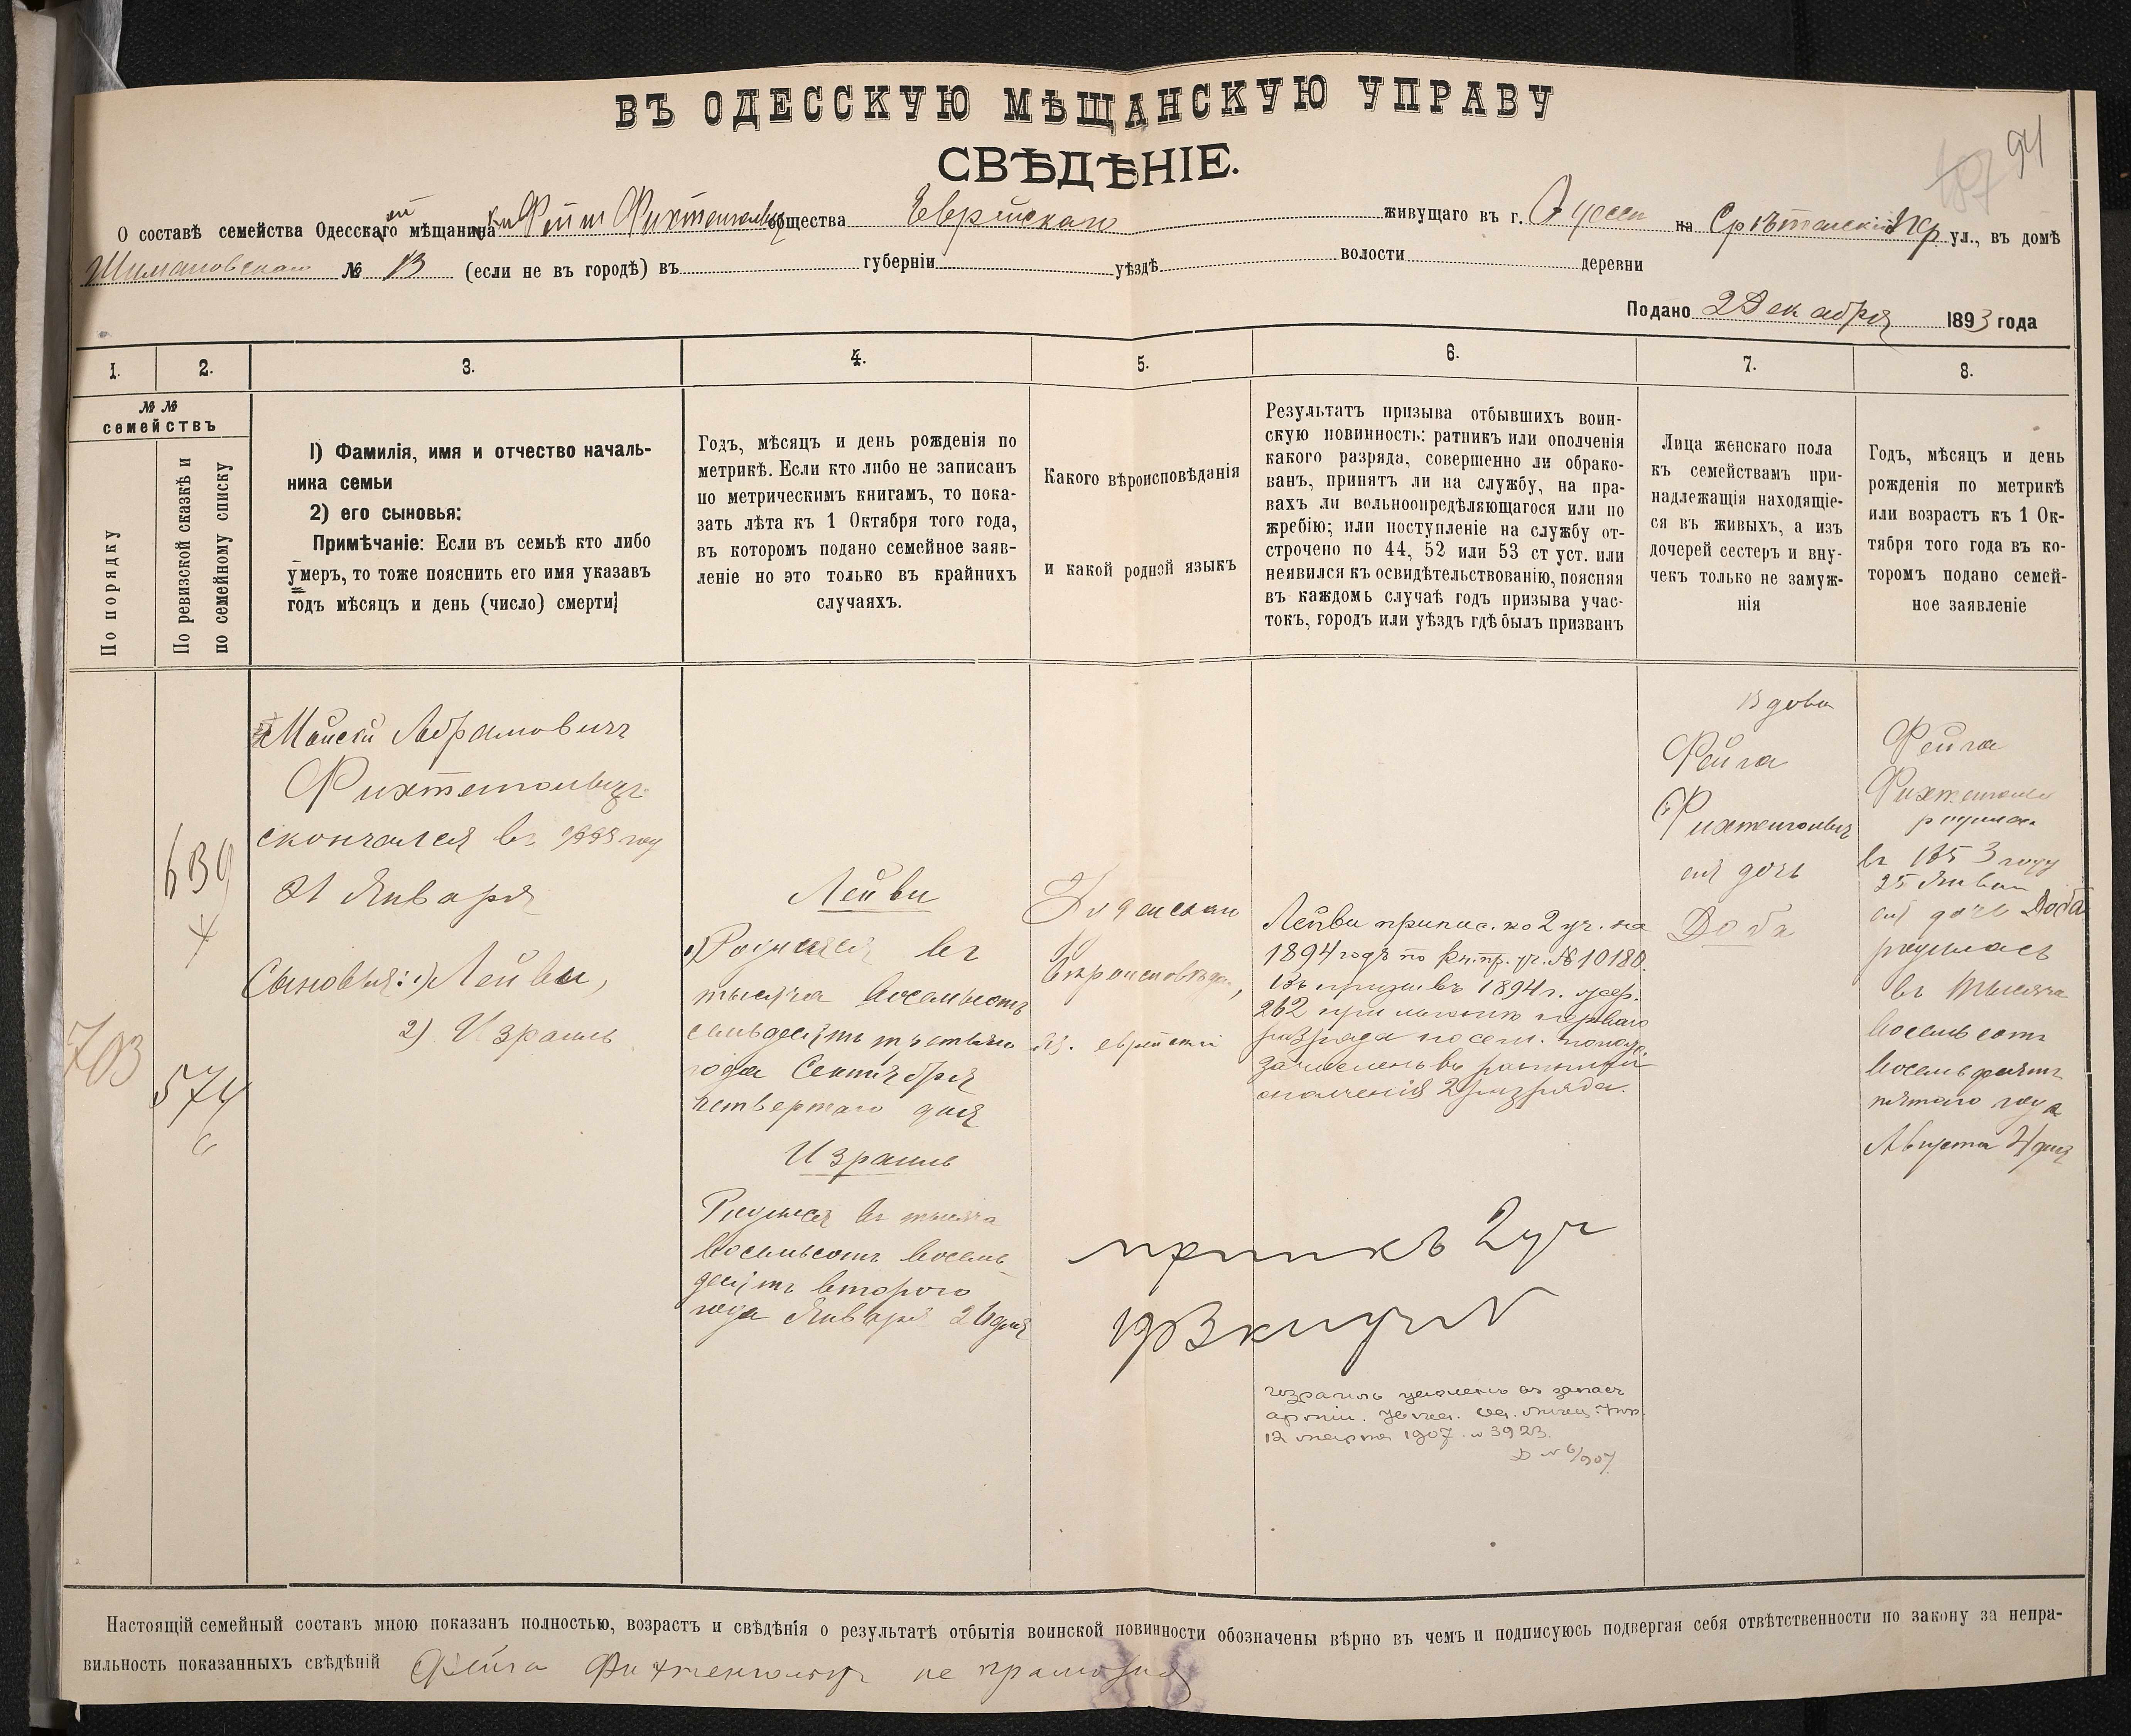 ВЪ ОДЕССКУЮ МѢЩАНСКУЮ УПРАВУ
СВѢДѢНІЕ.
94
О составѣ семейства Одесскаго мѣщанина общества Еврейскаго живущаго въ г. Одессѣ на Срѣтенскій пер ул., въ домѣ
Шимановскаго № 13 (если не въ городѣ) въ губерніи уѣздѣ волости деревни
Подано 2 Декабря 1893 года
1. 2. 3. 4. 5. 6. 7. 8.
№ №
семействъ
По порядку
По ревизской сказкѣ и
по семейному списку
1) Фамилія, имя и отчество началь-
ника семьи
2) его сыновья:
Примѣчаніе: Если въ семьѣ кто либо
умеръ, то тоже пояснить его имя указавъ
годъ мѣсяцъ и день (число) смерти;
Годъ, мѣсяцъ и день рожденія по
метрикѣ. Если кто либо не записанъ
по метрическимъ книгамъ, то пока-
зать лѣта къ 1 Октября того года,
въ которомъ подано семейное заяв-
леніе но это только въ крайнихъ
случаяхъ.
Какого вѣроисповѣданія
и какой родной языкъ
Результатъ призыва отбывшихъ воин-
скую повинность: ратникъ или ополченія
какого разряда, совершенно ли обрако-
ванъ, принятъ ли на службу, на пра-
вахъ ли вольноопредѣляющагося или по
жребію; или поступленіе на службу от-
строчено по 44, 52 или 53 ст уст. или
неявился къ освидѣтельствованію, поясняя
въ каждомъ случаѣ годъ призыва учас-
токъ, городъ или уѣздъ гдѣ былъ призванъ
Лица женскаго пола
къ семействамъ при-
надлежащія находящіе-
ся въ живыхъ, а изъ
дочерей сестеръ и вну-
чекъ только не замуж-
нія
Годъ, мѣсяцъ и день
рожденія по метрикѣ
или возрастъ къ 1 Ок-
тября того года въ ко-
торомъ подано семей-
ное заявленіе
703
639
574
6
Абрамовичъ
скончался въ году
21 Января
Сыновья: 1) Лейви,
2) Израиль
Лейви
1) Родился въ
тысяча восемьсотъ
семьдесятъ третьяго
года Сентября
четвертаго дня
Израиль
Родился въ тысяча
восемьсотъ восемь-
десятъ второго
года Января 26 дня
Іудейскаго
вѣроисповѣдан,
яз. еврейскій
Лейви припис. ко 2 уч. на
1894 годъ по № 10180.
Въ призывъ 1894 г. жер.
262 при перваго
разряда по сем.
зачисленъ въ ратники
ополченія 2 разряда.
2 уч
Израиль уволенъ въ запасъ
арміи.
12 марта 1907. № 3923.
Д № 6/907
Вдова
Фейга
ея дочь
Доба
Фейга
родилась
въ 1853 году
25 Января
ея дочь Доба
родилась
въ тысяча
восемьсотъ
восемьдесятъ
пятаго года
Августа дня
Настоящій семейный составъ мною показанъ полностью, возрастъ и свѣдѣнія о результатѣ отбытія воинской повинности обозначены вѣрно въ чемъ и подписуюсь подвергая себя отвѣтственности по закону за непра-
вильность показанныхъ свѣдѣній Фейга Фихтенгольцъ не грамотная